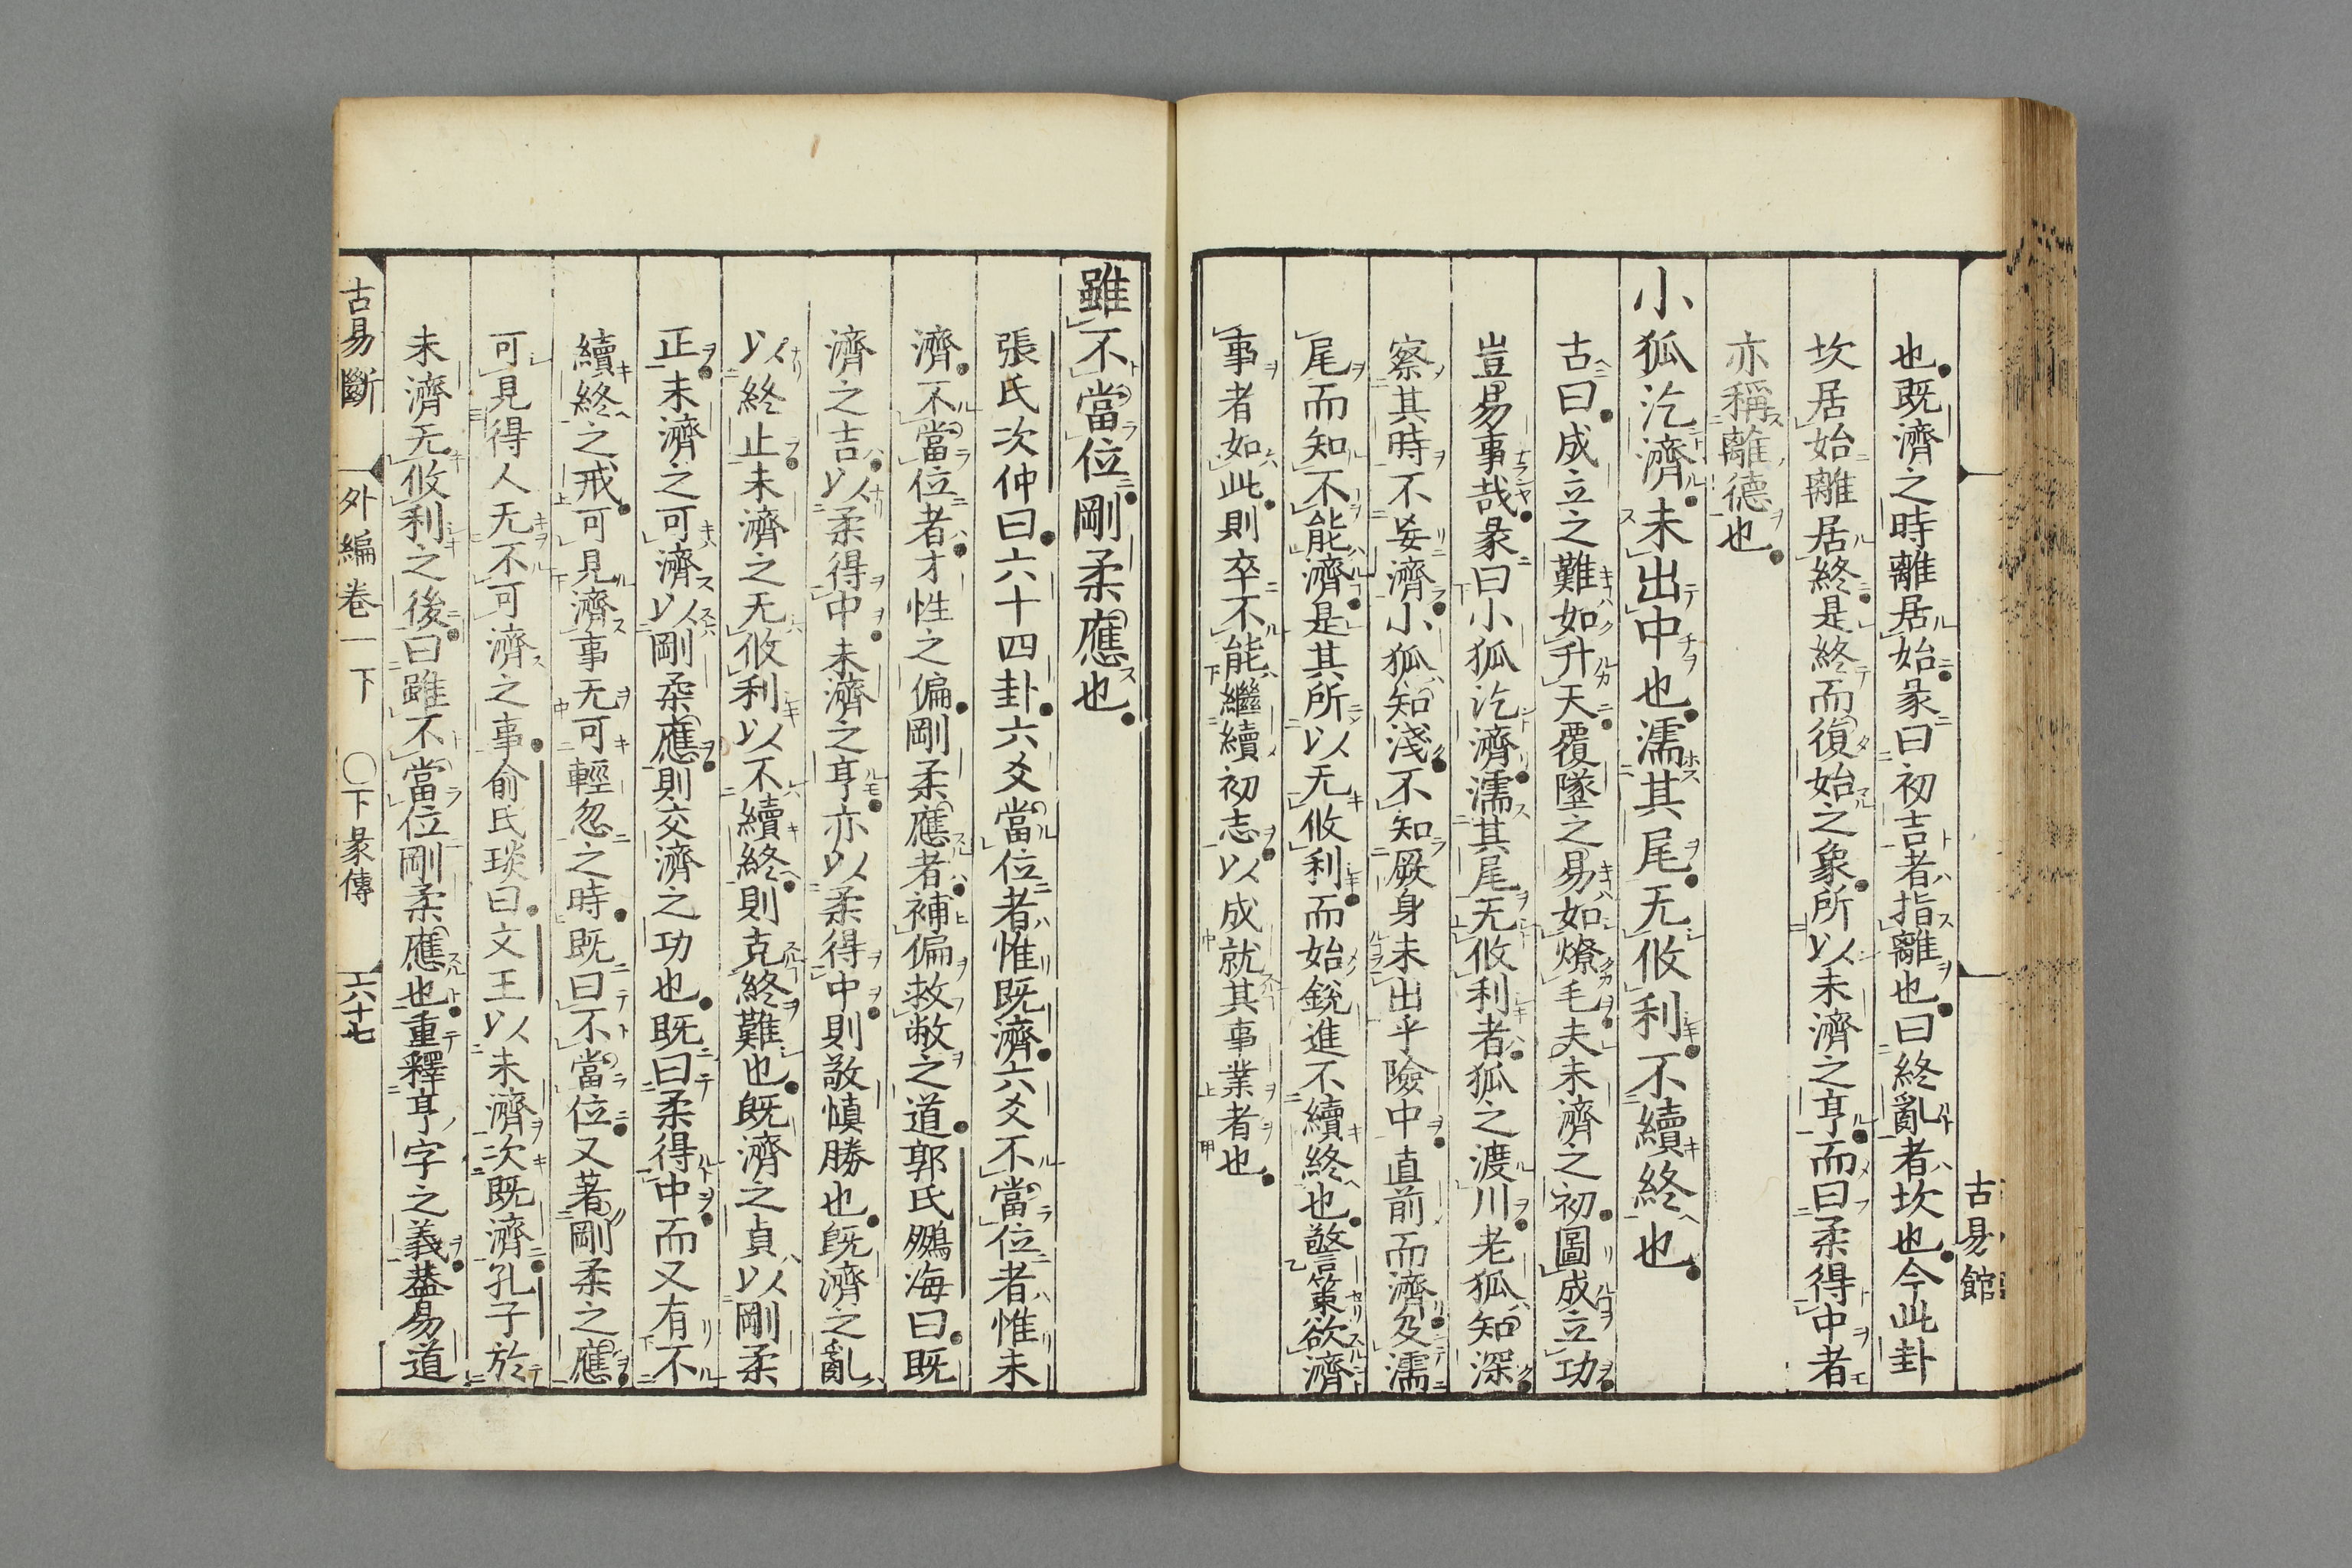 也既濟之時離居始彖曰初吉者指離也曰終亂者坎也今此卦
坎居始離居終是終而復始之象所以未濟之亨而曰柔得中者
亦稱離德也
小狐汔濟未出中也濡其尾无攸利不續終也
古曰成立之難如升天覆墜之易如燎毛夫未濟之初圖成立功
豈易事哉彖曰小狐汔濟濡其尾无攸利者狐之渡川老狐知深
察其時不妄濟小狐知淺不知厥身未出乎險中直前而濟及濡
尾而知不能濟是其所以无攸利而始銳進不續終也警策欲濟
事者如此則卒不能繼續初志以成就其事業者也
古易館
雖不當位剛柔應也
張氏次仲曰六十四卦六爻當位者惟既濟六爻不當位者惟未
濟不當位者才性之偏剛柔應者補偏救敝之道郭氏鵬海曰既
濟之吉以柔得中未濟之亨亦以柔得中則敬慎勝也既濟之亂
以終止未濟之无攸利以不續終則克終難也既濟之貞以剛柔
正未濟之可濟以剛柔應則交濟之功也既曰柔得中而又有不
續終之戒可見濟事无可輕忽之時既曰不當位又著剛柔之應
可見得人无不可濟之事俞氏琰曰文王以未濟次既濟孔子於
未濟无攸利之後曰雖不當位剛柔應也重釋亨字之義蓋易道
古易斷 外編卷一下 〇下彖傳 六十七